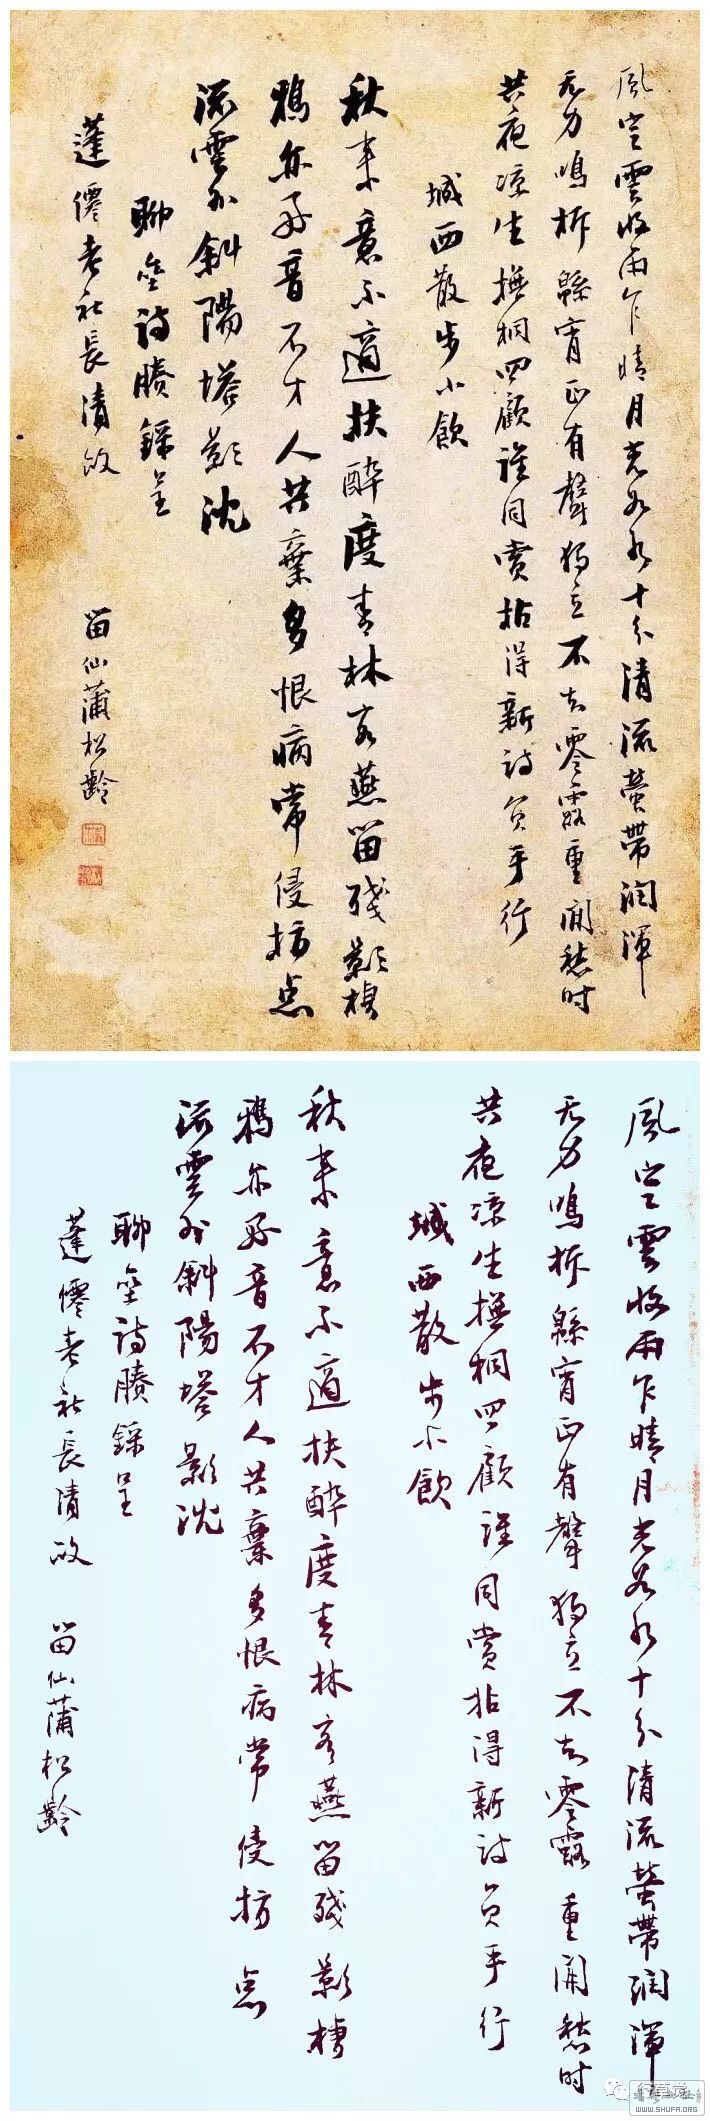 風定雲收雨乍晴月光如水十分清流螢帶潤渾
无力鳴柝縣宵正有聲獨立不知零露重閒愁時
共夜涼生撫桐四顧誰同賞拈得新詩負手行
城西散步小飲
秋來意不適扶醉度青林客燕留殘影棲
鴉亦好音不才人共棄多恨病常侵指点
流雲外斜陽塔影沈
聊齋詩賸錄呈
蓬僊老社長清政
留仙蒲松齡
風定雲收雨乍晴月光如水十分清流螢帶潤渾
无力鳴柝縣宵正有聲獨立不知零露重閒愁時
共夜涼生撫桐四顧誰同賞拈得新詩負手行
城西散步小飲
秋來意不適扶醉度青林客燕留殘影棲
鴉亦好音不才人共棄多恨病常侵指点
流雲外斜陽塔影沈
聊齋詩賸錄呈
蓬僊老社長清政
留仙蒲松齡
WWW.SHUFA.ORG